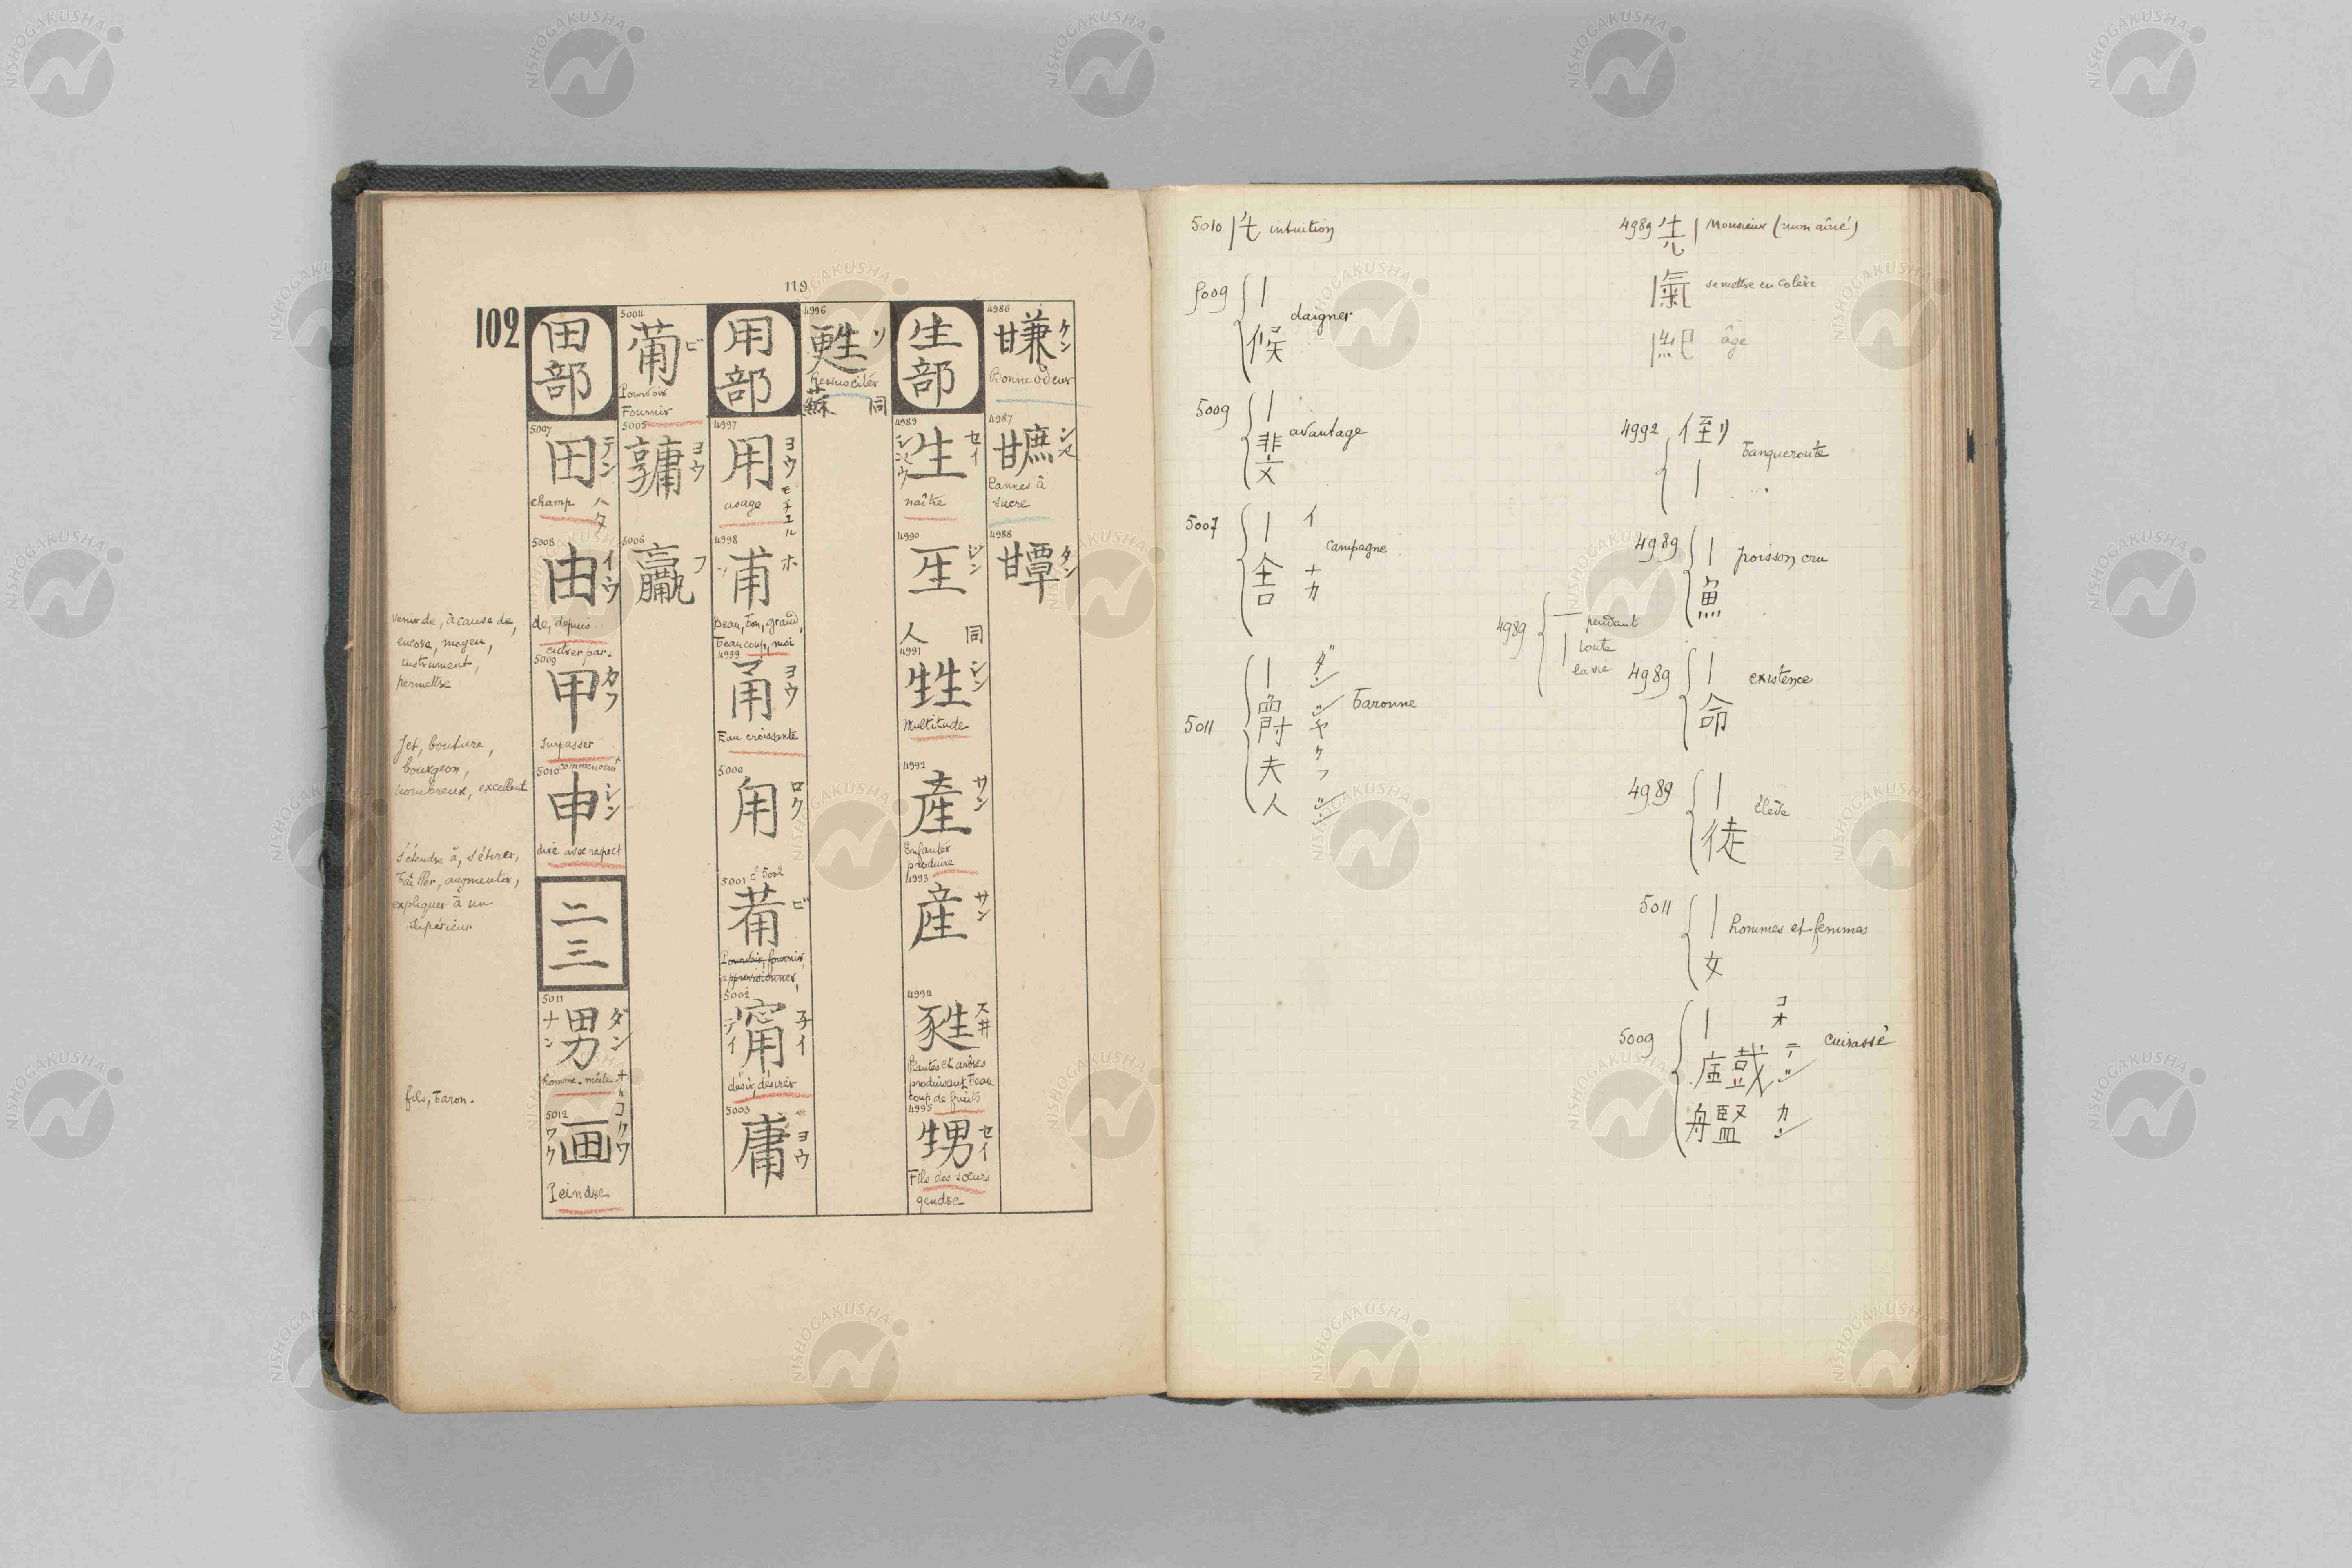 119
102
4986
ケン
Bonne odeur
4987
Cannes à
sucre
4988
タン
生部
4989
生
セイ
naître
4990
人 同
4991
甡
シン
Multitude
4992
産
サン
Enfanter
produire
4993
産
サン
4994
Plantes et arbres
produisant beau
coup de fruits
4995
甥
セイ
Fils des sœurs
gendre
4996
甦
ソ
Ressusciter
蘇 同
用部
4997
用
ヨウ
モチユル
usage
4998
甫
ホ
Beau, bon, grand,
beaucoup, moi
4999
甬
ヨウ
Eau croissante
5000
甪
ロク
5001 c 5002
ビ
Pourvoir, fournir,
approvisionner,
5002
甯
テイ
désir, désirer
5003
庸
ヨウ
5004
ビ
Pourvoir
Fournir
5005
ヨウ
5006
フ
田部
5007
田
テン
ハタ
champ
5008
由
イウ
de, depuis
entrer par.
5009
甲
カフ
Surpasser
commencemt
5010
申
シン
dire avec respect
二三
5011
男
ダン
ナン
homme-mâle
5012
画
Peindre
venir de, à cause de,
encore, moyen,
instrument,
permettre
Jet, bouture,
bourgeon,
nombreux, excellent
s'étendre à, s'étirer,
bâiller, augmenter,
expliquer à un
supérieur
fils, baron.
4989 先 | Monsieur (mon aîné)
| 氣 se mettre en colère
| 紀 âge
4992 倒 | banqueroute
4989 | 魚 poisson cru
4989 一 | pendant
toute
la vie
4989 | 命 existence
4989 | 徒 élève
5011 | 女 hommes et femmes
5009 | 艦 cuirassé
カン
5010 | intuition
5009 | 候 daigner
5009 | 斐 avantage
5007 | 舎 campagne
イナカ
5011 | 爵夫人 baronne